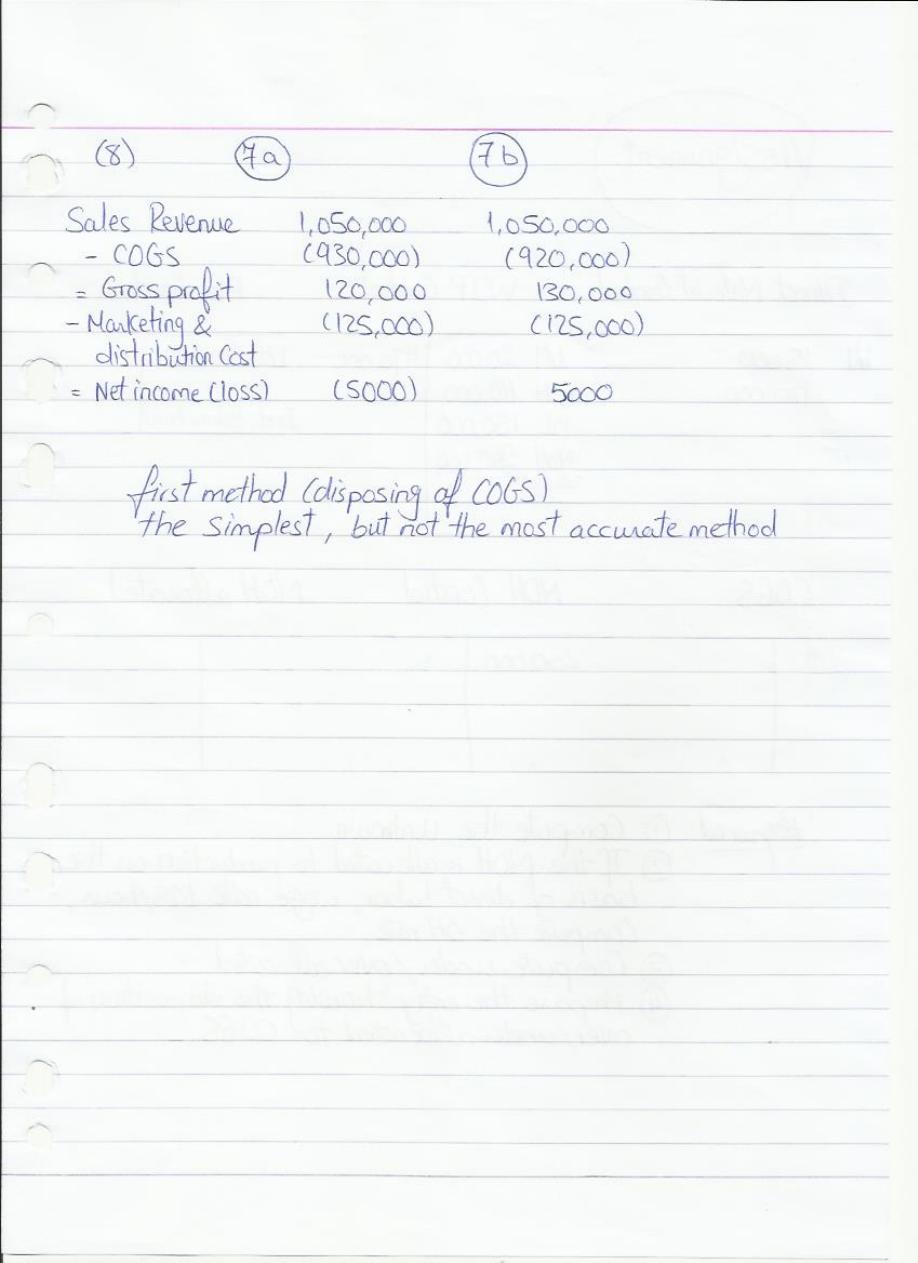 (8) 7a 7b
Sales Revenue 1,050,000 1,050,000
- COGS (930,000) (920,000)
= Gross profit 120,000 130,000
- Marketing & (125,000) (125,000)
distribution Cost
= Net income (loss) (5000) 5000
first method (disposing of COGS)
the simplest, but not the most accurate method